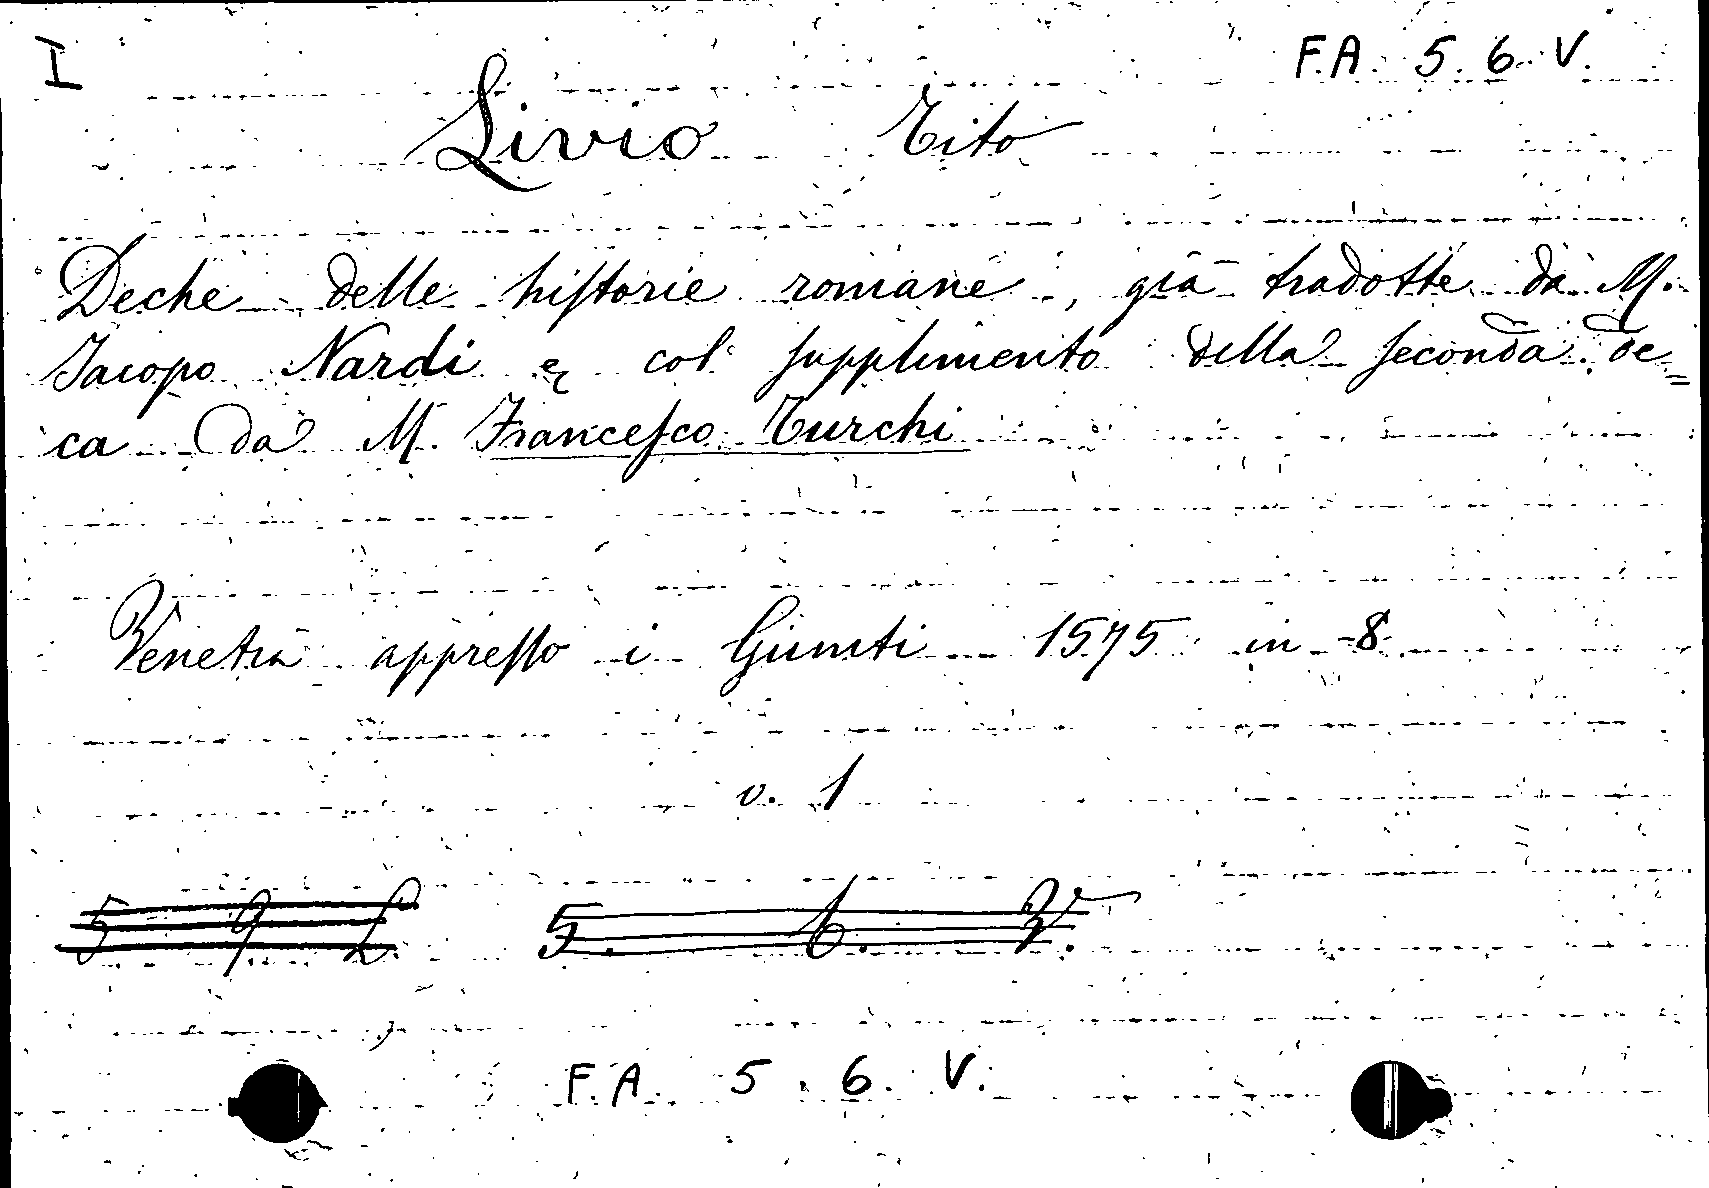 I
F.A. 5. 6. V.
Livio Tito
Deche delle hiſtorie romane, già tradotte da M.
Jacopo Nardi e col ſupplimento della ſeconda de=
ca da M. Franceſco Turchi
Venetia appreſſo i Giunti 1575 in 8
v. 1
5 9 L. 5. 6. V.
F.A. 5. 6. V.